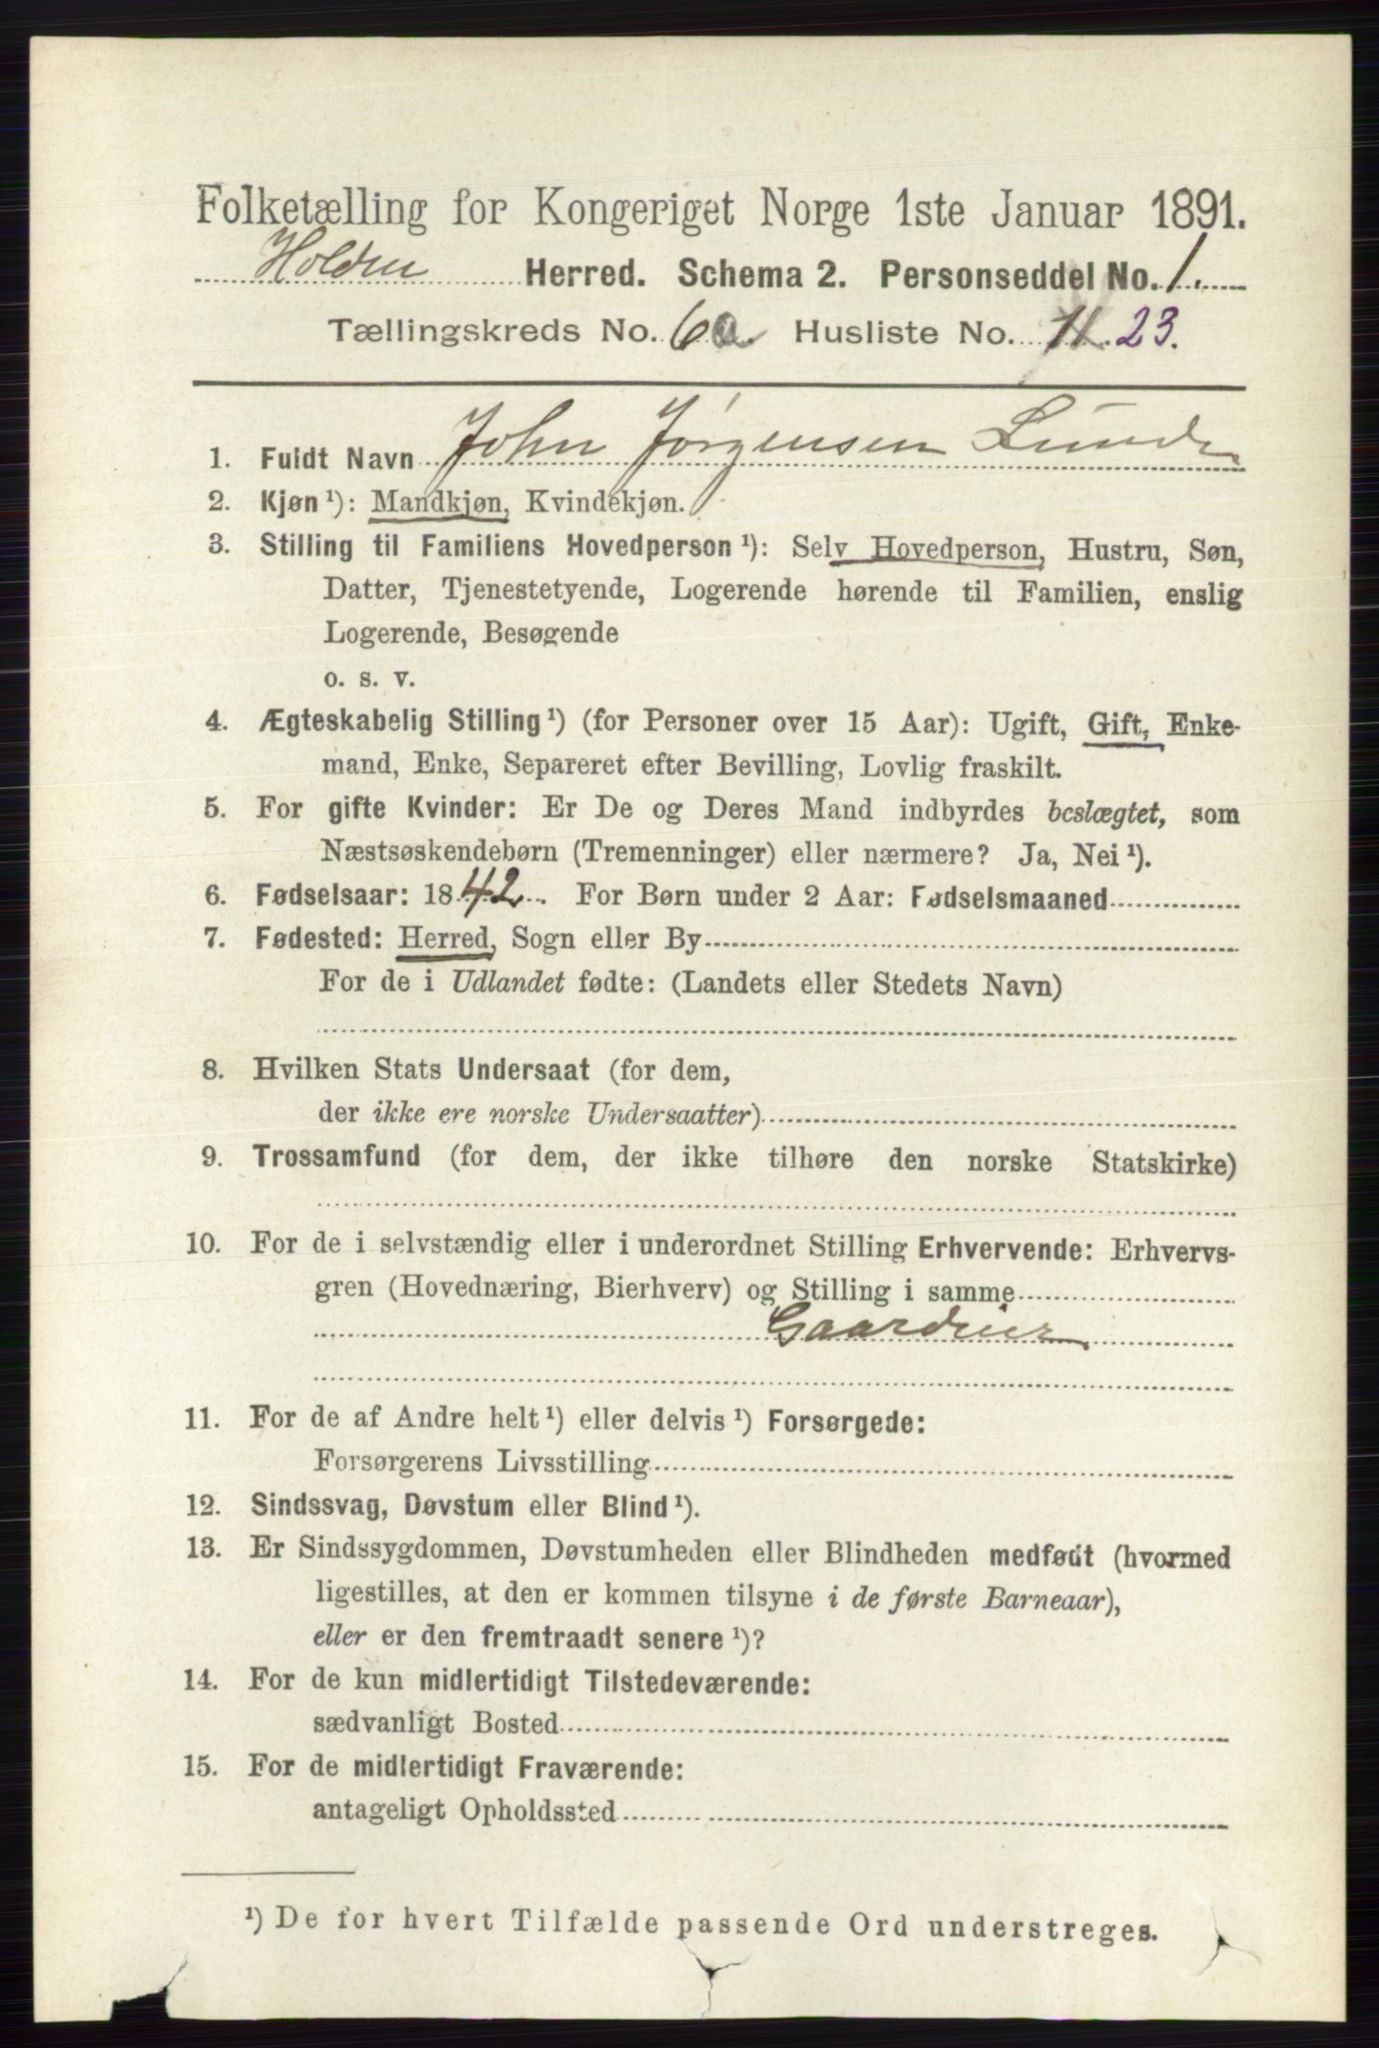 Folketælling for Kongeriget Norge 1ste Januar 1891.
Holden Herred. Schema 2. Personseddel No. 1.
Tællingskreds No. 6a. Husliste No. 11. 23.
1. Fuldt Navn John Jørgensen Lunde
2. Kjøn ¹): Mandkjøn, Kvindekjøn.
3. Stilling til Familiens Hovedperson ¹): Selv Hovedperson, Hustru, Søn,
Datter, Tjenestetyende, Logerende hørende til Familien, enslig
Logerende, Besøgende
o. s. v.
4. Ægteskabelig Stilling ¹) (for Personer over 15 Aar): Ugift, Gift, Enke-
mand, Enke, Separeret efter Bevilling, Lovlig fraskilt.
5. For gifte Kvinder: Er De og Deres Mand indbyrdes beslægtet, som
Næstsøskendebørn (Tremenninger) eller nærmere? Ja, Nei ¹).
6. Fødselsaar: 1842. For Børn under 2 Aar: Fødselsmaaned
7. Fødested: Herred, Sogn eller By
For de i Udlandet fødte: (Landets eller Stedets Navn)
8. Hvilken Stats Undersaat (for dem,
der ikke ere norske Undersaatter)
9. Trossamfund (for dem, der ikke tilhøre den norske Statskirke)
10. For de i selvstændig eller i underordnet Stilling Erhvervende: Erhvervs-
gren (Hovednæring, Bierhverv) og Stilling i samme
Gaardeier
11. For de af Andre helt ¹) eller delvis ¹) Forsørgede:
Forsørgerens Livsstilling
12. Sindssvag, Døvstum eller Blind ¹).
13. Er Sindssygdommen, Døvstumheden eller Blindheden medfødt (hvormed
ligestilles, at den er kommen tilsyne i de første Barneaar),
eller er den fremtraadt senere ¹)?
14. For de kun midlertidigt Tilstedeværende:
sædvanligt Bosted
15. For de midlertidigt Fraværende:
antageligt Opholdssted
¹) De for hvert Tilfælde passende Ord understreges.